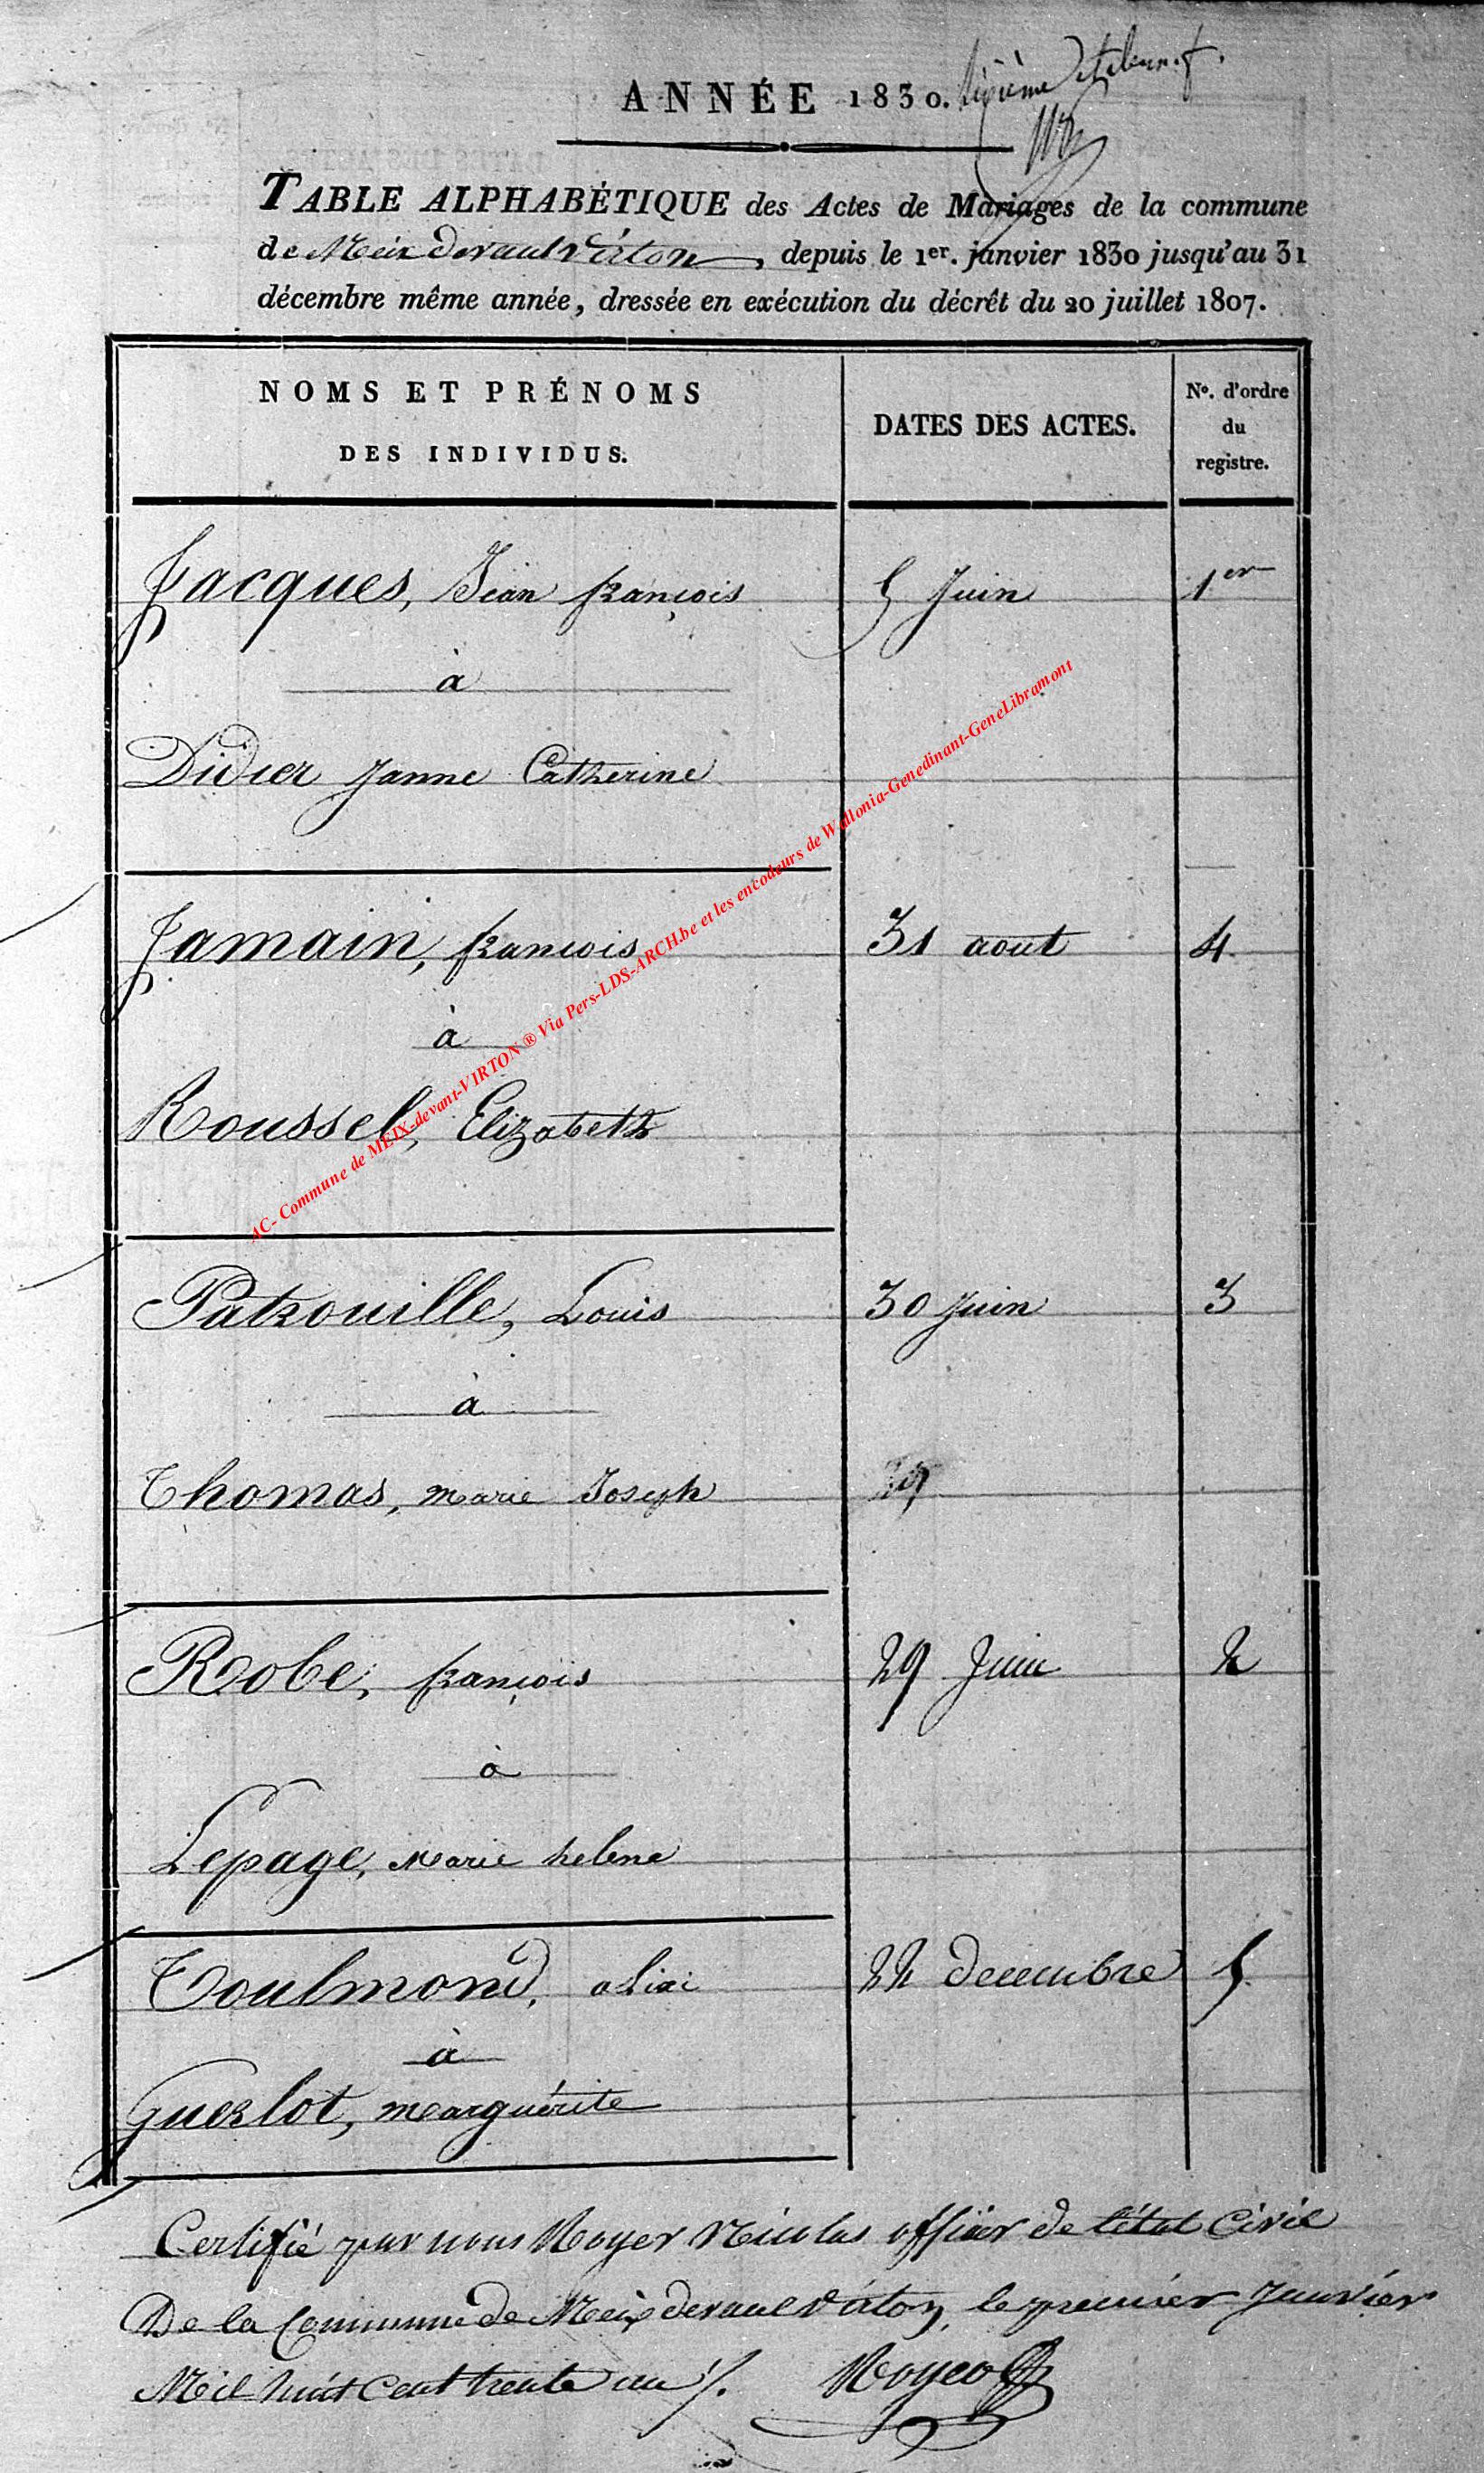 ANNÉE 1830. Sixième et
TABLE ALPHABÉTIQUE des Actes de Mariages de la commune
de Meix devant Virton, depuis le 1er. janvier 1830 jusqu'au 31
décembre même année, dressée en exécution du décrêt du 20 juillet 1807.
NOMS ET PRÉNOMS
DES INDIVIDUS.
DATES DES ACTES.
No. d'ordre
du
registre.
Jacques, Jean françois 5 Juin 1er
à
Didier Janne Catherine
Jamain, francois 31 aout 4
à
Roussel, Elizabeth
Patrouille, Louis 30 Juin 3
à
Thomas, marie Joseph
Robe, françois 29 Juin 2
à
Lepage, Marie helene
Toulmond, 22 decembre 5
à
Guerlot, marguérite
Certifié par nous Noyer Nicolas officier de l'état Civil
De la Commune de Meix devant virton, le premier Janvier
Mil huit Cent trente un /.
AC- Commune de MEIX-devant-VIRTON ® Via Pers-LDS-ARCH.be et les encodeurs de Wallonia-Genedinant-GeneLibramont